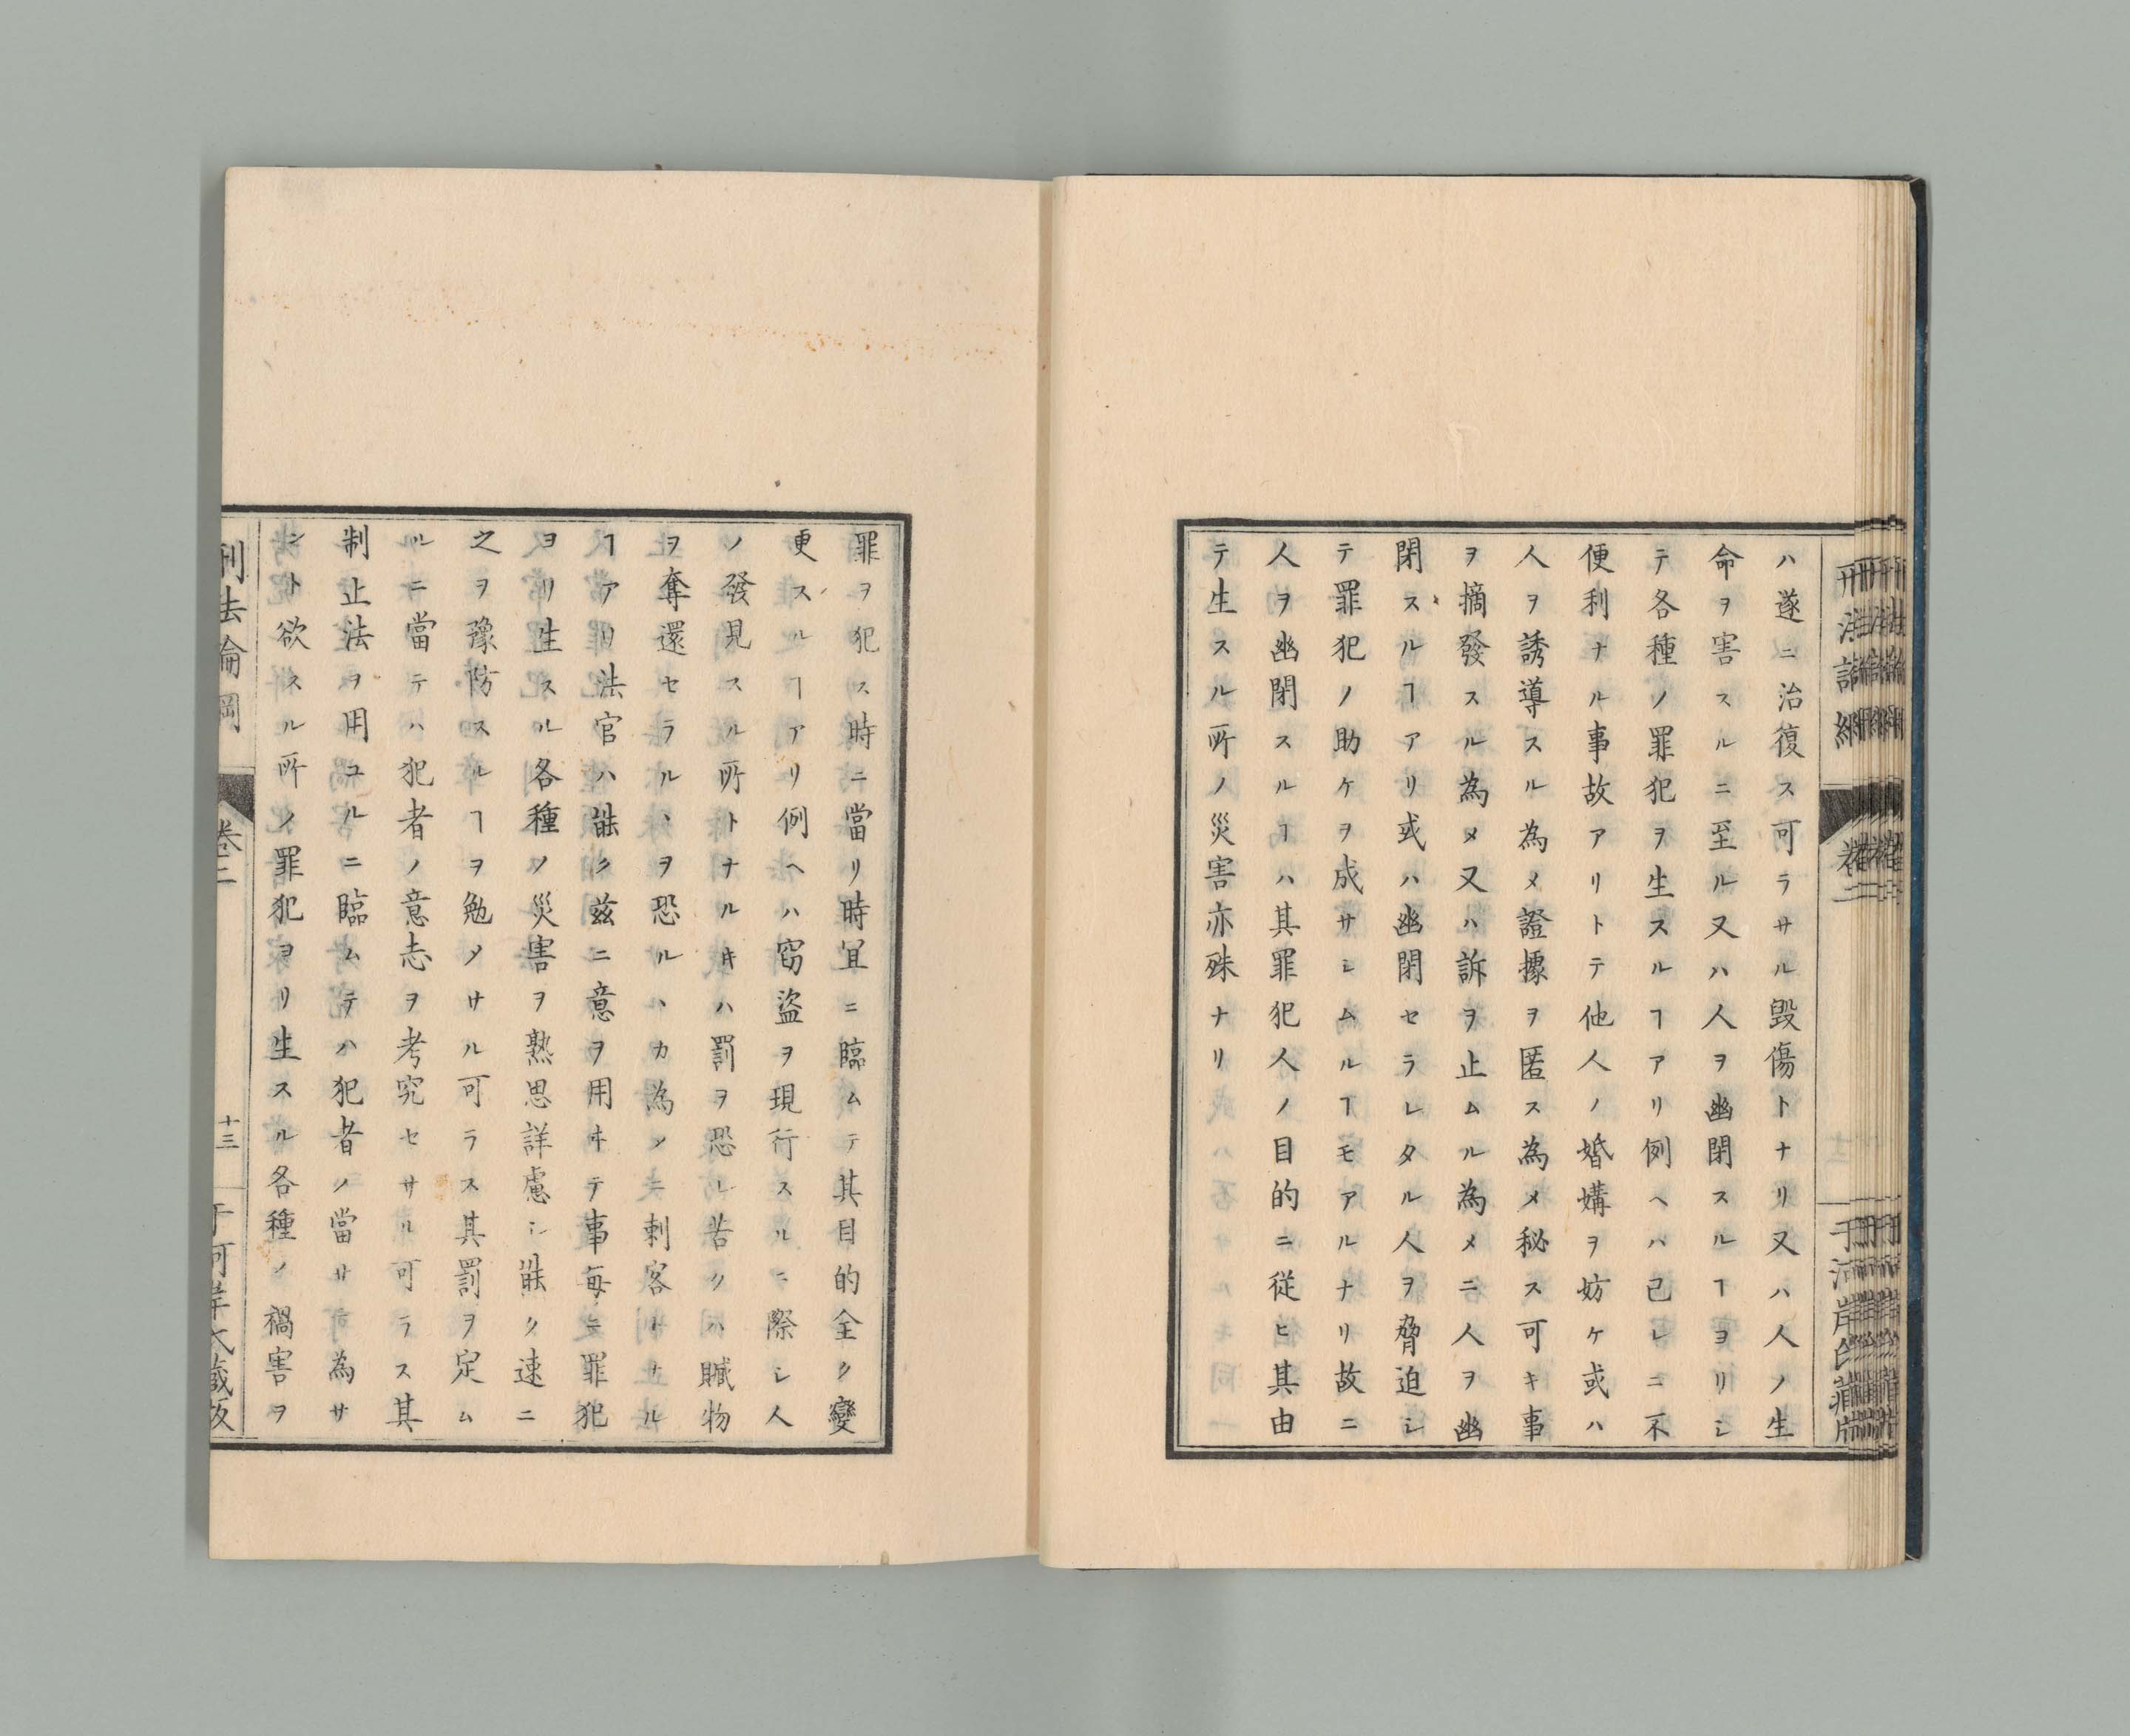 ハ遂ニ治復ス可ラサル毀傷トナリ又ハ人ノ生
命ヲ害スルニ至ル又ハ人ヲ幽閉スルヿヨリシ
テ各種ノ罪犯ヲ生スルヿアリ例ヘハ己レニ不
便利ナル事故アリトテ他人ノ婚媾ヲ妨ケ或ハ
人ヲ誘導スル為メ證據ヲ匿ス為メ秘ス可キ事
ヲ摘發スル為メ又ハ訴ヲ止ムル為メニ人ヲ幽
閉スルヿアリ或ハ幽閉セラレタル人ヲ脅迫シ
テ罪犯ノ助ケヲ成サシムルヿモアルナリ故ニ
人ヲ幽閉スルヿハ其罪犯人ノ目的ニ從ヒ其由
テ生スル所ノ災害亦殊ナリ
罪ヲ犯ス時ニ當リ時宜ニ臨ムテ其目的全ク變
更スルヿアリ例ヘハ窃盜ヲ現行スルニ際シ人
ノ發見スル所トナルキハ罰ヲ恐レ苦クハ贓物
ヲ奪還セラルヽヲ恐ルヽカ為メニ剌客トナル
ヿアリ法官ハ能ク茲ニ意ヲ用ヰテ事每ニ罪犯
ヨリ生スル各種ノ災害ヲ熟思詳慮シ能ク速ニ
之ヲ豫防スルヿヲ勉メサル可ラス其罰ヲ定ム
ルニ當テハ犯者ノ意志ヲ考究セサル可ラス其
制止法ヲ用ユルニ臨ムテハ犯者ノ當サ可為サ
ント欲スル所ノ罪犯ヨリ生スル各種ノ禍害ヲ
刑法論綱
卷二
十三